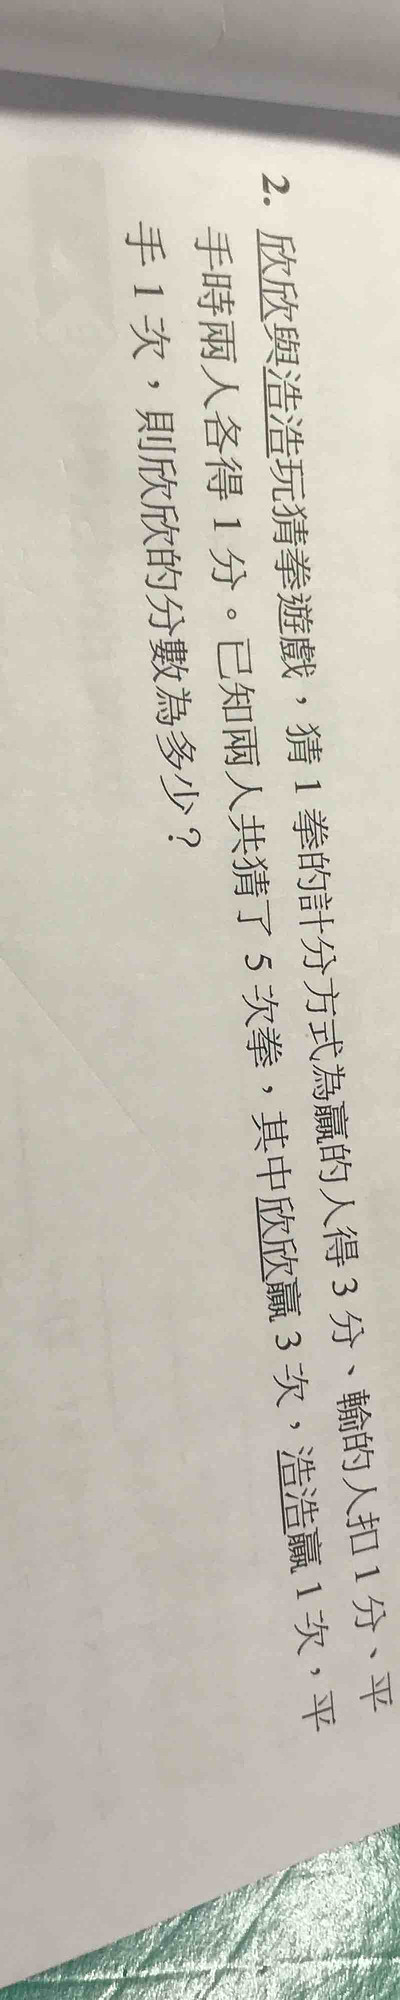 2. 欣欣與浩浩玩猜拳遊戲，猜 1 拳的計分方式為贏的人得 3 分、輸的人扣 1 分、平
手時兩人各得 1 分。已知兩人共猜了 5 次拳，其中欣欣贏 3 次，浩浩贏 1 次，平
手 1 次，則欣欣的分數為多少？